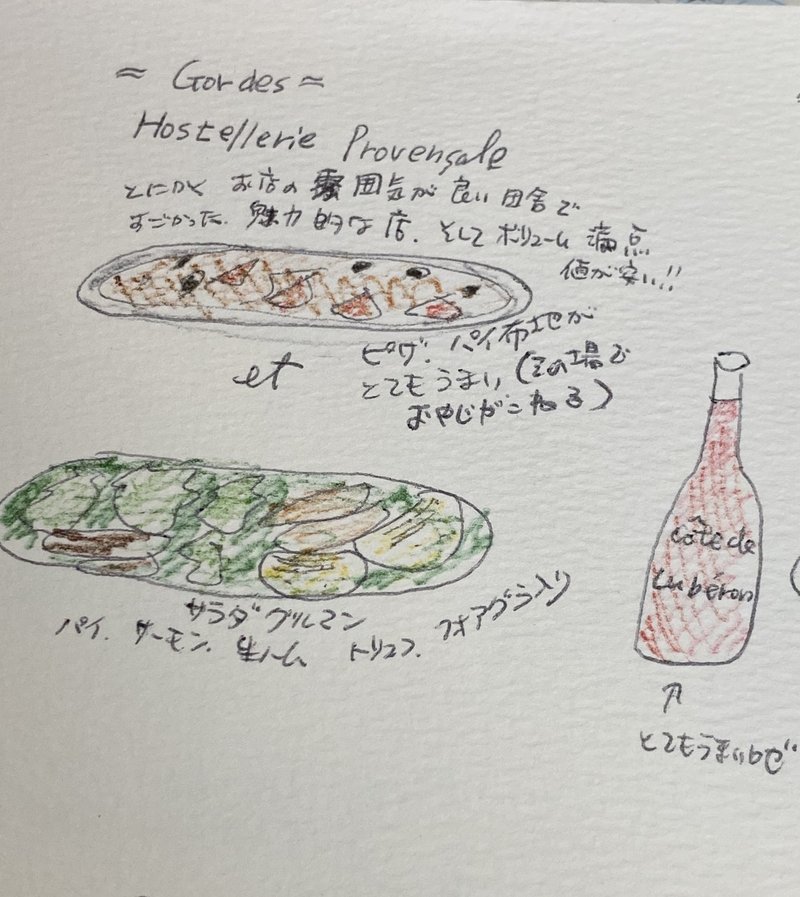 ≈ Gordes ≈
Hostellerie Provençale
とにかく お店の 雰囲気が 良い 田舎で
すごかった. 魅力的な店. そして ボリューム 満点
値が安い!!
ピザ. パイ布地が
とてもうまい (その場で
おやじがこねる)
et
côte de
Lubéron
サラダグルマン
パイ. サーモン. 生ハム トリュフ. フォアグラ入り
↑
とてもうまいロゼ